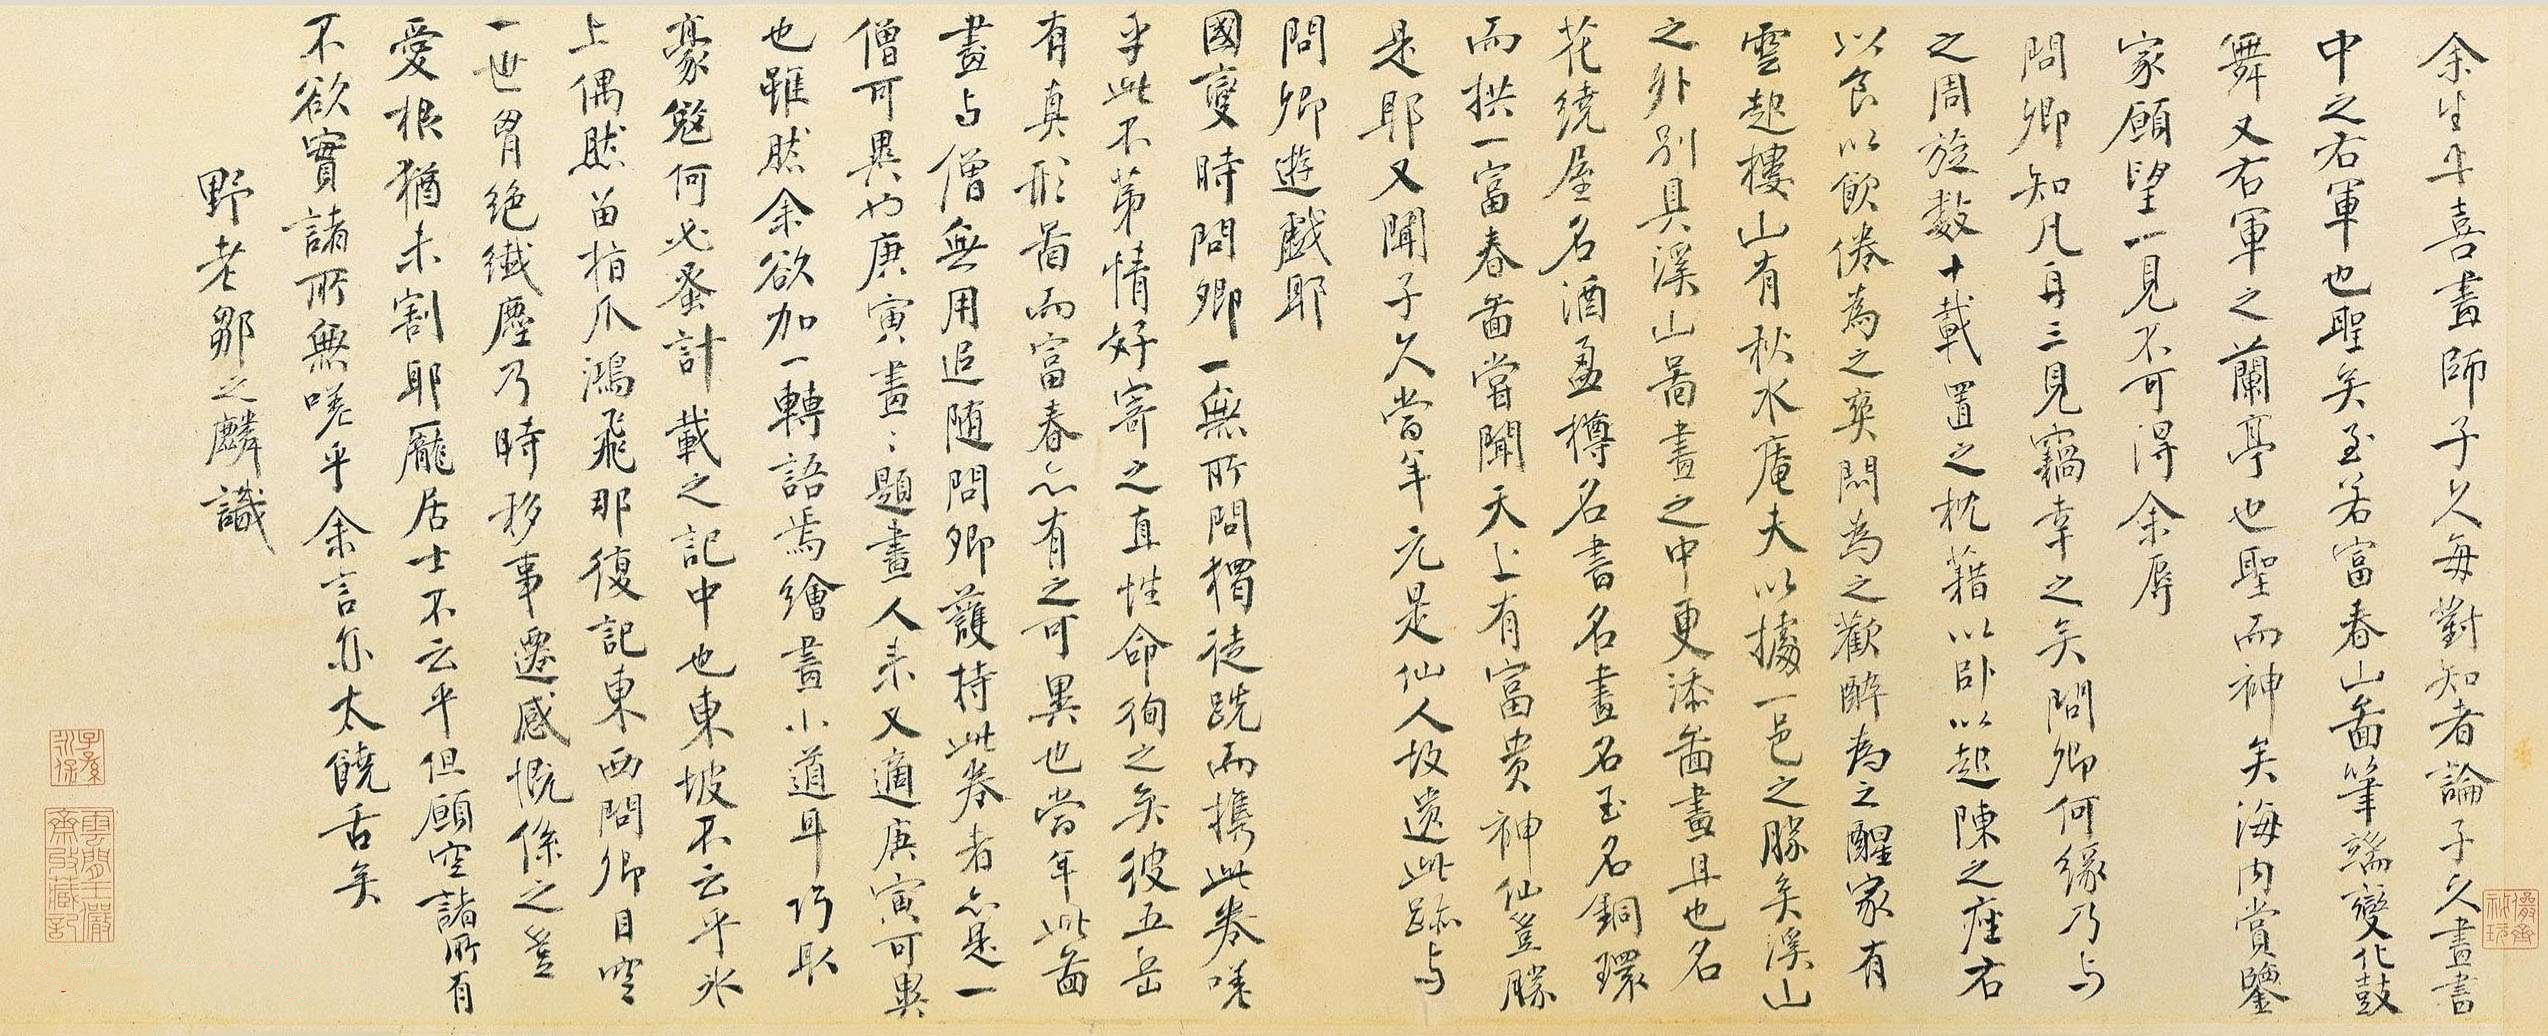 余生平喜畫師子久每對知者論子久畫書
中之右軍也聖矣至若富春山啚筆端變化鼓
舞又右軍之蘭亭也聖而神矣海內賞鑒
家願望一見不可得余辱
問卿知凡再三見竊幸之矣問卿何緣乃与
之周旋数十載置之枕藉以卧以起陳之座右
以食以飲倦為之爽悶為之歡醉為之醒家有
雲起樓山有秋水庵夫以據一邑之勝矣溪山
之外別具溪山啚畫之中更添啚畫且也名
花繞屋名酒盈樽名書名畫名玉名銅環
而拱一富春啚嘗聞天上有富貴神仙豈勝
是耶又聞子久當年元是仙人故遺此跡与
問卿遊戲耶
國變時問卿一無所問獨徒跣而携此卷嗟
乎此不第情好寄之直性命徇之矣彼五岳
有真形啚而富春亦有之可異也當年此啚
畫与僧無用追随問卿護持此卷者亦是一
僧可異也庚寅畫畫題畫人来又適庚寅可異
也雖然余欲加一轉語焉繪畫小道耳巧取
豪奪何必蚤計載之記中也東坡不云乎氷
上偶然留指爪鴻飛那復記東西問卿目空
一世胷絶纎塵乃時移事遷感慨係之豈
愛根猶未割耶龐居士不云乎但願空諸所有
不欲實諸所無嗟乎余言亦太饒舌矣
野老鄒之麟識
子孫
永保
雲間王儼
齋收藏記
儼齋
秘玩